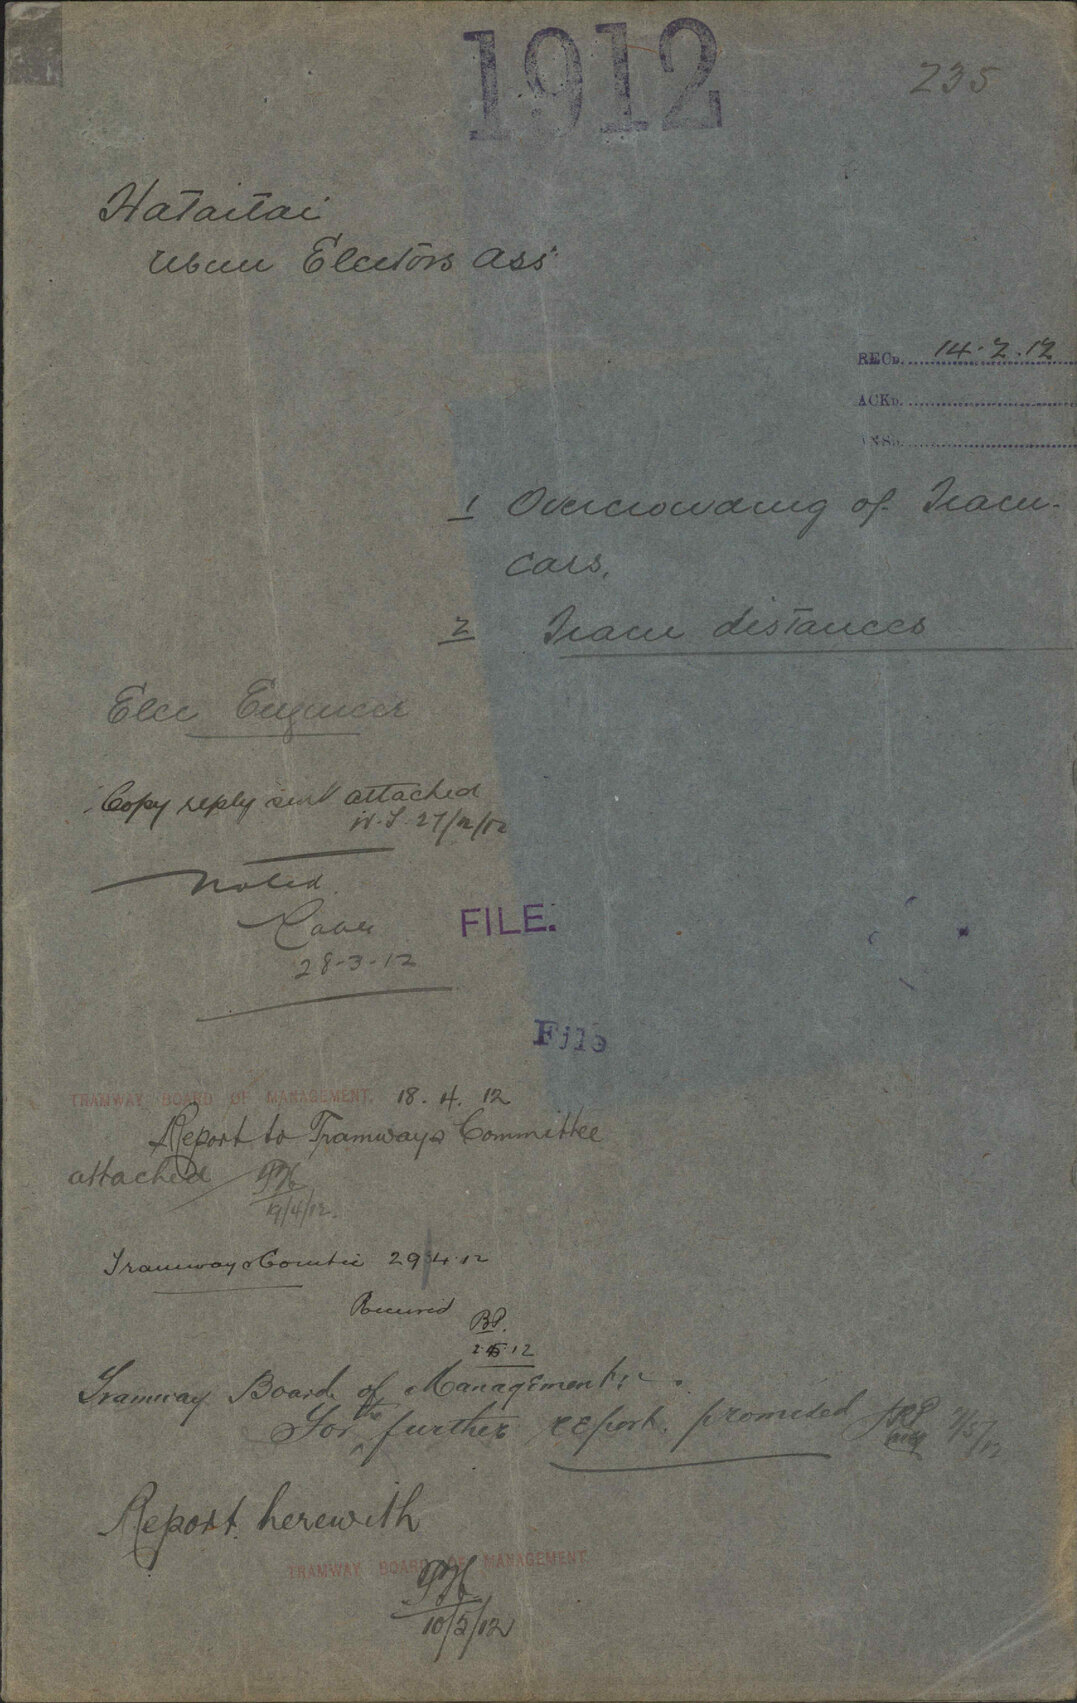 1912
235
Hataitai
Electors Ass
RECD. 14.2.12
ACKD.
ANSD.
1 Overcrowding of Tram-
cars.
2 Tram distances
Elec Engineer
Copy reply sent attached
27/2/12
Noted
28-3-12
FILE.
File
TRAMWAY BOARD OF MANAGEMENT. 18.4.12
Report to Tramways Committee
attached
19/4/12.
Tramways Comtee 29.4.12
Received
BP.
12
Tramway Board of Management:-
For the further report promised
7/5/12
Report herewith
TRAMWAY BOARD OF MANAGEMENT
10/5/12